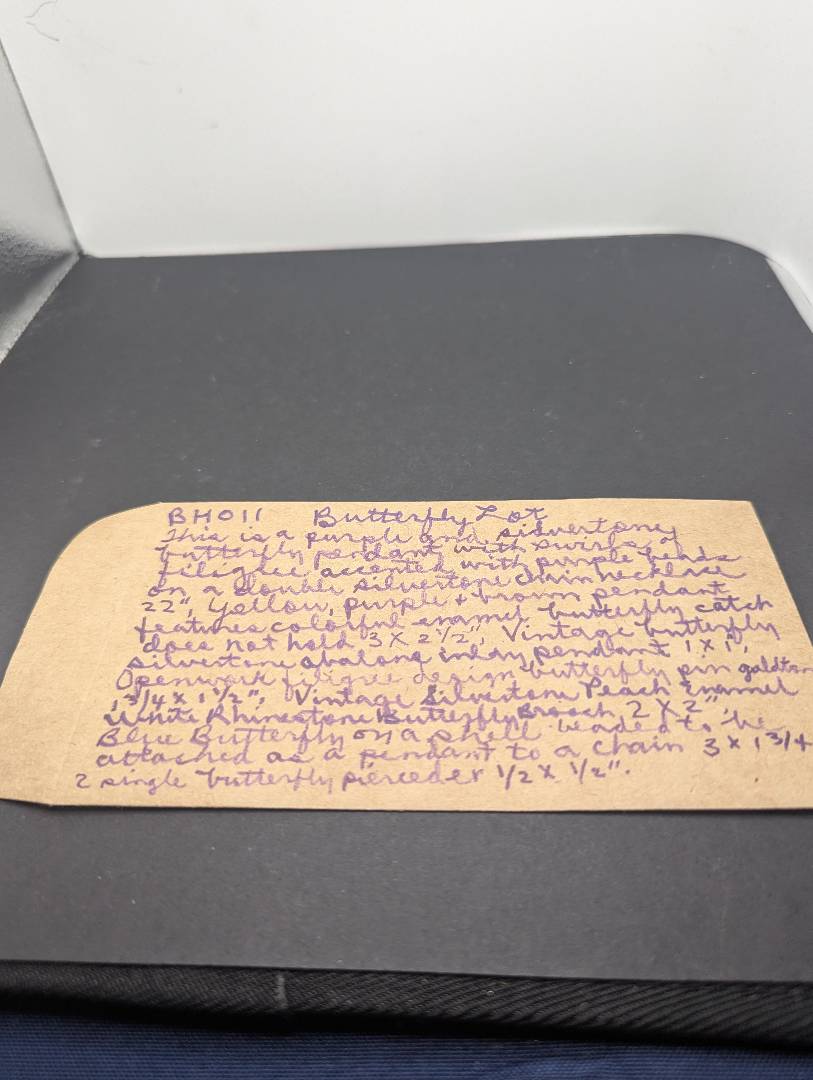 BH011 Butterfly Lot
This is a purple and silvertone
butterfly pendant with swirls of
filigree accented with purple beads
on a double silvertone chain necklace
22", Yellow, purple + brown pendant
features colorful enamel butterfly catch
does not hold 3 X 2 1/2", Vintage butterfly
silvertone abalone inlay pendant 1 X 1",
Openwork filigree design butterfly pin goldtone
1 3/4 X 1 1/2", Vintage Silvertone Peach Enamel
White Rhinestone Butterfly Brooch 2 X 2",
Blue Butterfly on a shell beaded to be
attached as a pendant to a chain 3 X 1 3/4
2 single butterfly pierced 1/2 X 1/2".